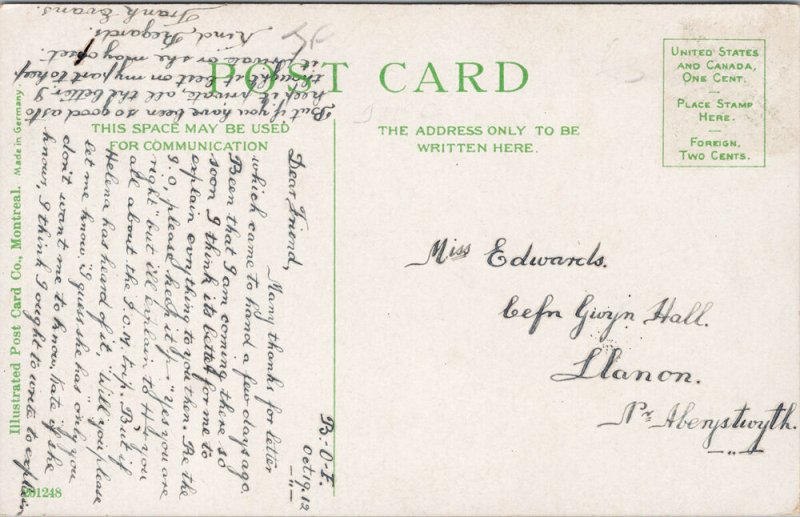 POST CARD
UNITED STATES
AND CANADA,
ONE CENT.
PLACE STAMP
HERE.
FOREIGN,
TWO CENTS.
THIS SPACE MAY BE USED
FOR COMMUNICATION
THE ADDRESS ONLY TO BE
WRITTEN HERE.
Illustrated Post Card Co., Montreal. Made in Germany
201248
Miss Edwards.
Cefn Gwyn Hall.
Llanon.
Nr Aberystwyth.
B.O.F.
Oct 19. 12
Dear Friend,
Many thanks for letter
which came to hand a few days ago.
Been that I am coming there so
soon I think its better for me to
explain everything to you then. Re the
I.O, please keep it "Yes you are
right" but I'll explain to you
all about the I.O.M. trip. But if
Helena has heard of it "Will you please
let me know, "I guess she has" only you
don't want me to know, Kate if she
knows, I think I ought to write to explain
"But if you have been so good as to
keep it private all the better. I
thought best on my part to keep
it private as she may object.
Kind Regards
Frank Evans.